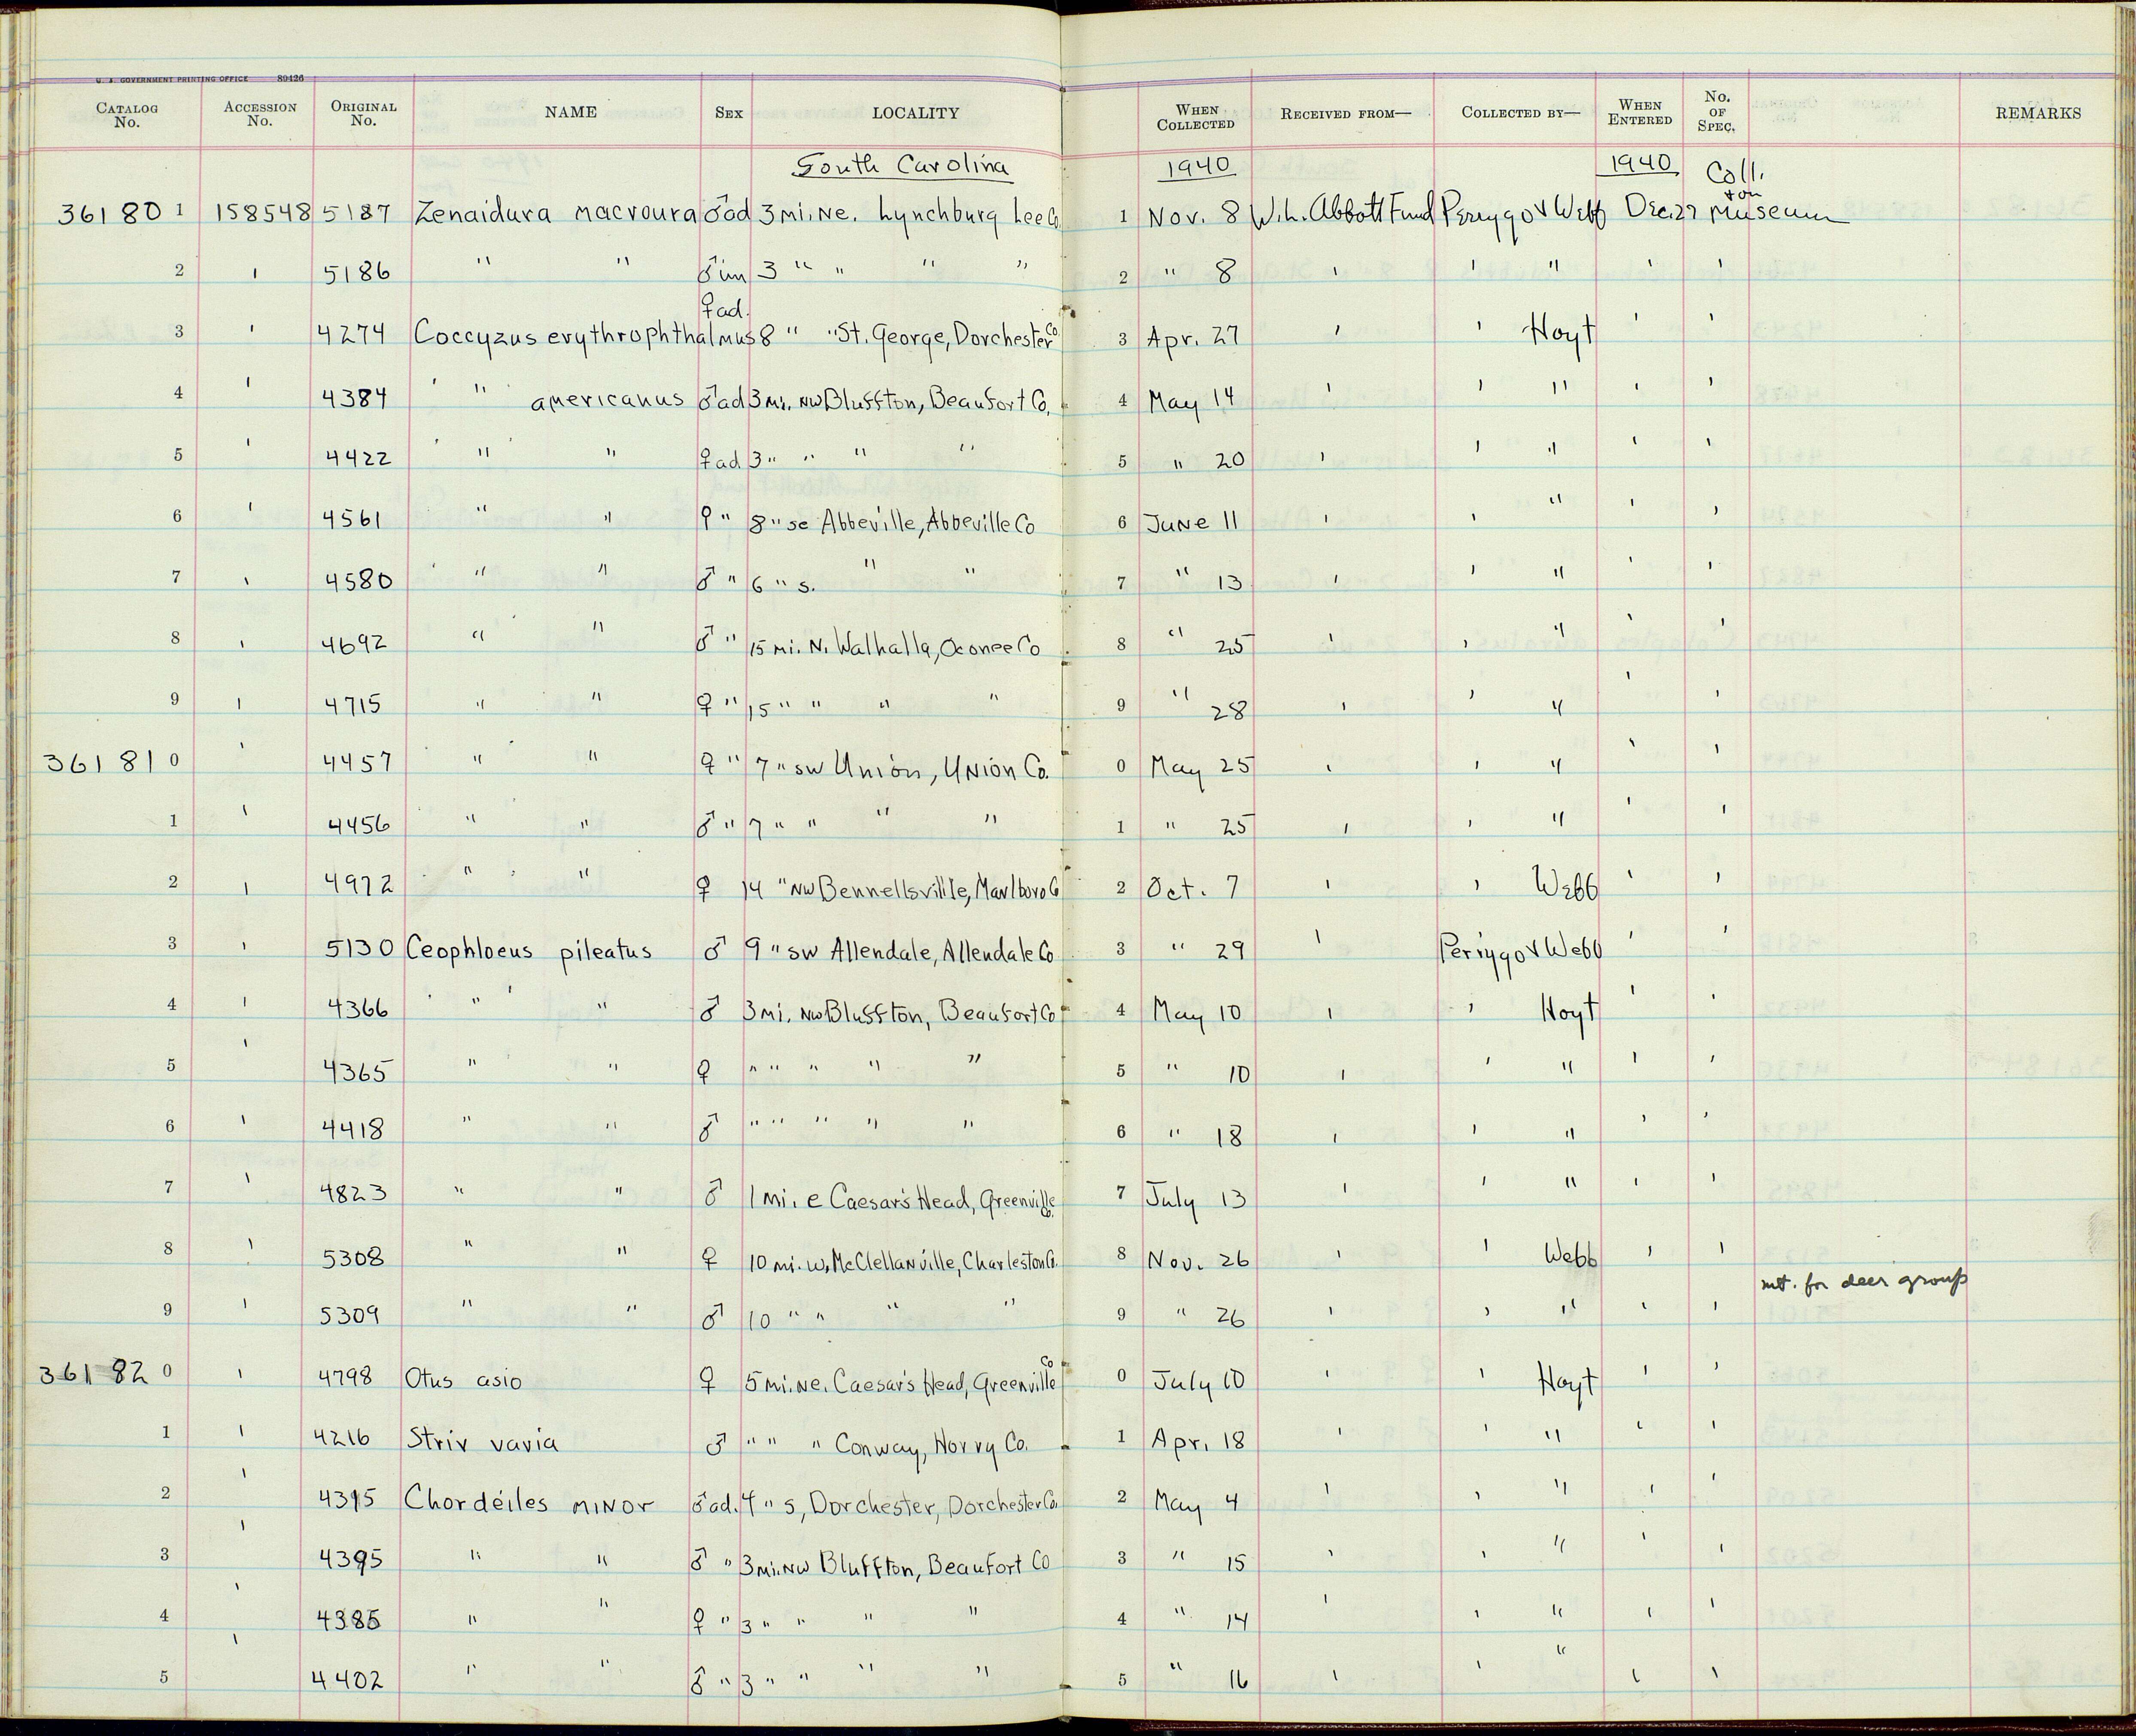 U. S. GOVERNMENT PRINTING OFFICE 89426
CATALOG No. ACCESSION No. ORIGINAL No. NAME SEX LOCALITY WHEN COLLECTED RECEIVED FROM— COLLECTED BY— WHEN ENTERED No. OF SPEC. REMARKS
South Carolina 1940 1940 Coll.
361801 158548 5187 Zenaidura macroura ♂ad 3 mi. NE. Lynchburg Lee Co. 1 Nov. 8 W.L. Abbott Fund Perrygo & Webb Dec. 27 Museum
2 ' 5186 " " ♂im 3 " " " " 2 " 8 ' ' " ' '
♀ad.
3 ' 4274 Coccyzus erythrophthalmus 8 " " St. George, Dorchester Co 3 Apr. 27 ' ' Hoyt ' '
4 ' 4384 ' " americanus ♂ad 3 mi. NW Bluffton, Beaufort Co. 4 May 14 ' ' " ' '
5 ' 4422 ' " " ♀ad 3 " " " " 5 " 20 ' ' " ' '
6 ' 4561 " " ♀ " 8 " SE Abbeville, Abbeville Co 6 June 11 ' ' " ' '
7 ' 4580 ' " " ♂ " 6 " S. " " 7 " 13 ' ' " ' '
8 ' 4692 " " ♂ " 15 mi. N. Walhalla, Oconee Co 8 " 25 ' ' " ' '
9 ' 4715 " " ♀ " 15 " " " " 9 " 28 ' ' " ' '
361810 ' 4457 " " ♀ " 7 " SW Union, Union Co. 0 May 25 ' ' " ' '
1 ' 4456 " " ♂ " 7 " " " " 1 " 25 ' ' " ' '
2 ' 4972 ' " ' " ♀ 14 " NW Bennellsville, Marlboro Co 2 Oct. 7 ' ' Webb ' '
3 ' 5130 Ceophloeus pileatus ♂ 9 " SW Allendale, Allendale Co 3 " 29 ' Perrygo & Webb ' '
4 ' 4366 ' " ' " ♂ 3 mi. NW Bluffton, Beaufort Co 4 May 10 ' ' Hoyt ' '
5 ' 4365 " ' " ♀ " " " " " 5 " 10 ' ' " ' '
6 ' 4418 " " ♂ " " " " " 6 " 18 ' ' " ' '
7 ' 4823 " " ♂ 1 mi. E Caesar's Head, Greenville Co. 7 July 13 ' ' " ' '
8 ' 5308 " " ♀ 10 mi. W. McClellanville, Charleston Co. 8 Nov. 26 ' ' Webb ' '
9 ' 5309 " " ♂ 10 " " " " 9 " 26 ' ' " ' ' mt. for deer group
361820 ' 4798 Otus asio ♀ 5 mi. NE. Caesar's Head, Greenville Co 0 July 10 ' ' Hoyt ' '
1 ' 4216 Strix varia ♂ " " " Conway, Horry Co. 1 Apr. 18 ' ' " ' '
2 ' 4315 Chordeiles minor ♂ad. 4 " S, Dorchester, Dorchester Co. 2 May 4 ' ' " ' '
3 ' 4395 " " ♂ " 3 mi. NW Bluffton, Beaufort Co 3 " 15 ' ' " ' '
4 ' 4385 " " ♀ " 3 " " " " 4 " 14 ' ' " ' '
5 ' 4402 " " ♂ " 3 " " " " 5 " 16 ' ' " ' '